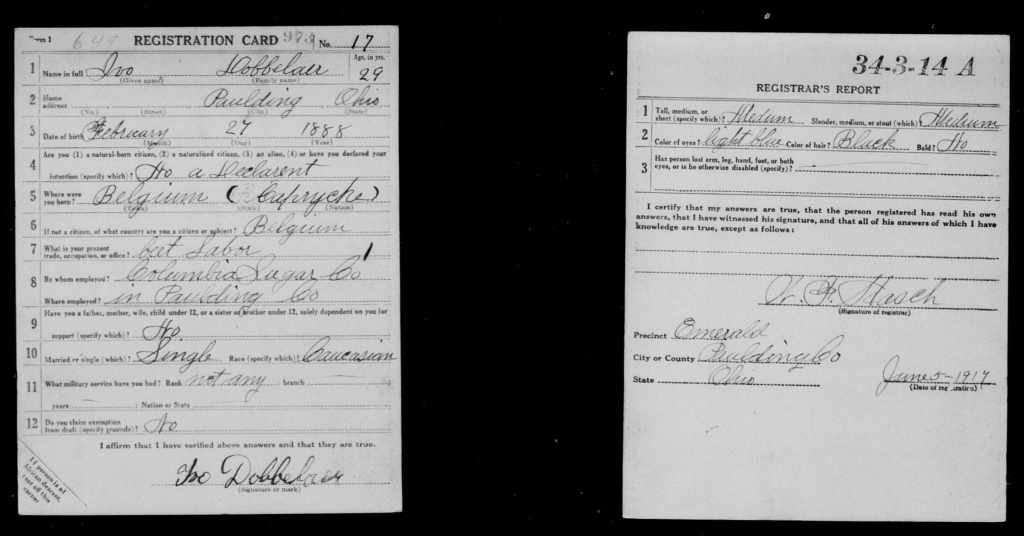 Form 1
649
REGISTRATION CARD
973
No. 17
1 Name in full Ivo Dobbelaer Age, in yrs. 29
(Given name) (Family name)
2 Home address Paulding Ohio
(No.) (Street) (City) (State)
3 Date of birth February 27 1888
(Month) (Day) (Year)
4 Are you (1) a natural-born citizen, (2) a naturalized citizen, (3) an alien, (4) or have you declared your
intention (specify which)? No a Declarent
5 Where were you born? Belgium (Caprycke)
(Town) (State) (Nation)
6 If not a citizen, of what country are you a citizen or subject? Belgium
7 What is your present trade, occupation, or office? beet Labor 1
8 By whom employed? Columbia Sugar Co
Where employed? in Paulding Co
9 Have you a father, mother, wife, child under 12, or a sister or brother under 12, solely dependent on you for
support (specify which)? No.
10 Married or single (which)? Single Race (specify which)? Caucasian
11 What military service have you had? Rank not any branch
years ; Nation or State
12 Do you claim exemption from draft (specify grounds)? No
I affirm that I have verified above answers and that they are true.
Ivo Dobbelaer
(Signature or mark)
If person is of
African descent,
tear off this
corner
34-3-14 A
REGISTRAR'S REPORT
1 Tall, medium, or short (specify which)? Medium Slender, medium, or stout (which)? Medium
2 Color of eyes? light blue Color of hair? Black Bald? No
3 Has person lost arm, leg, hand, foot, or both
eyes, or is he otherwise disabled (specify)?
I certify that my answers are true, that the person registered has read his own
answers, that I have witnessed his signature, and that all of his answers of which I have
knowledge are true, except as follows:
Stasch
(Signature of registrar)
Precinct Emerald
City or County Paulding Co
State Ohio June 5-1917
(Date of registration)